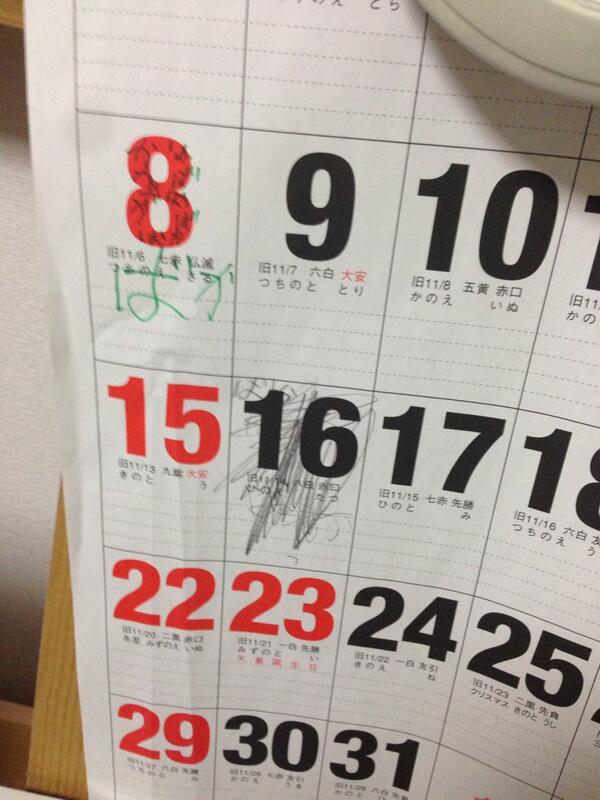 8
旧11/6 七赤 仏滅
つちのえ さる
ばか
9
旧11/7 六白 大安
つちのと とり
10
旧11/8 五黄 赤口
かのえ いぬ
15
旧11/13 九紫 大安
きのと う
16
旧11/14 八白 赤口
ひのえ たつ
17
旧11/15 七赤 先勝
ひのと み
18
旧11/16 六白
つちのえ う
22
旧11/20 二黒 赤口
冬至 みずのえ いぬ
23
旧11/21 一白 先勝
みずのと い
天皇誕生日
24
旧11/22 一白 友引
きのえ ね
25
旧11/23 二黒 先負
クリスマス きのと うし
29
旧11/27 六白 先勝
つちのと み
30
旧11/28 七赤 友引
かのえ うま
31
旧11/29 八白